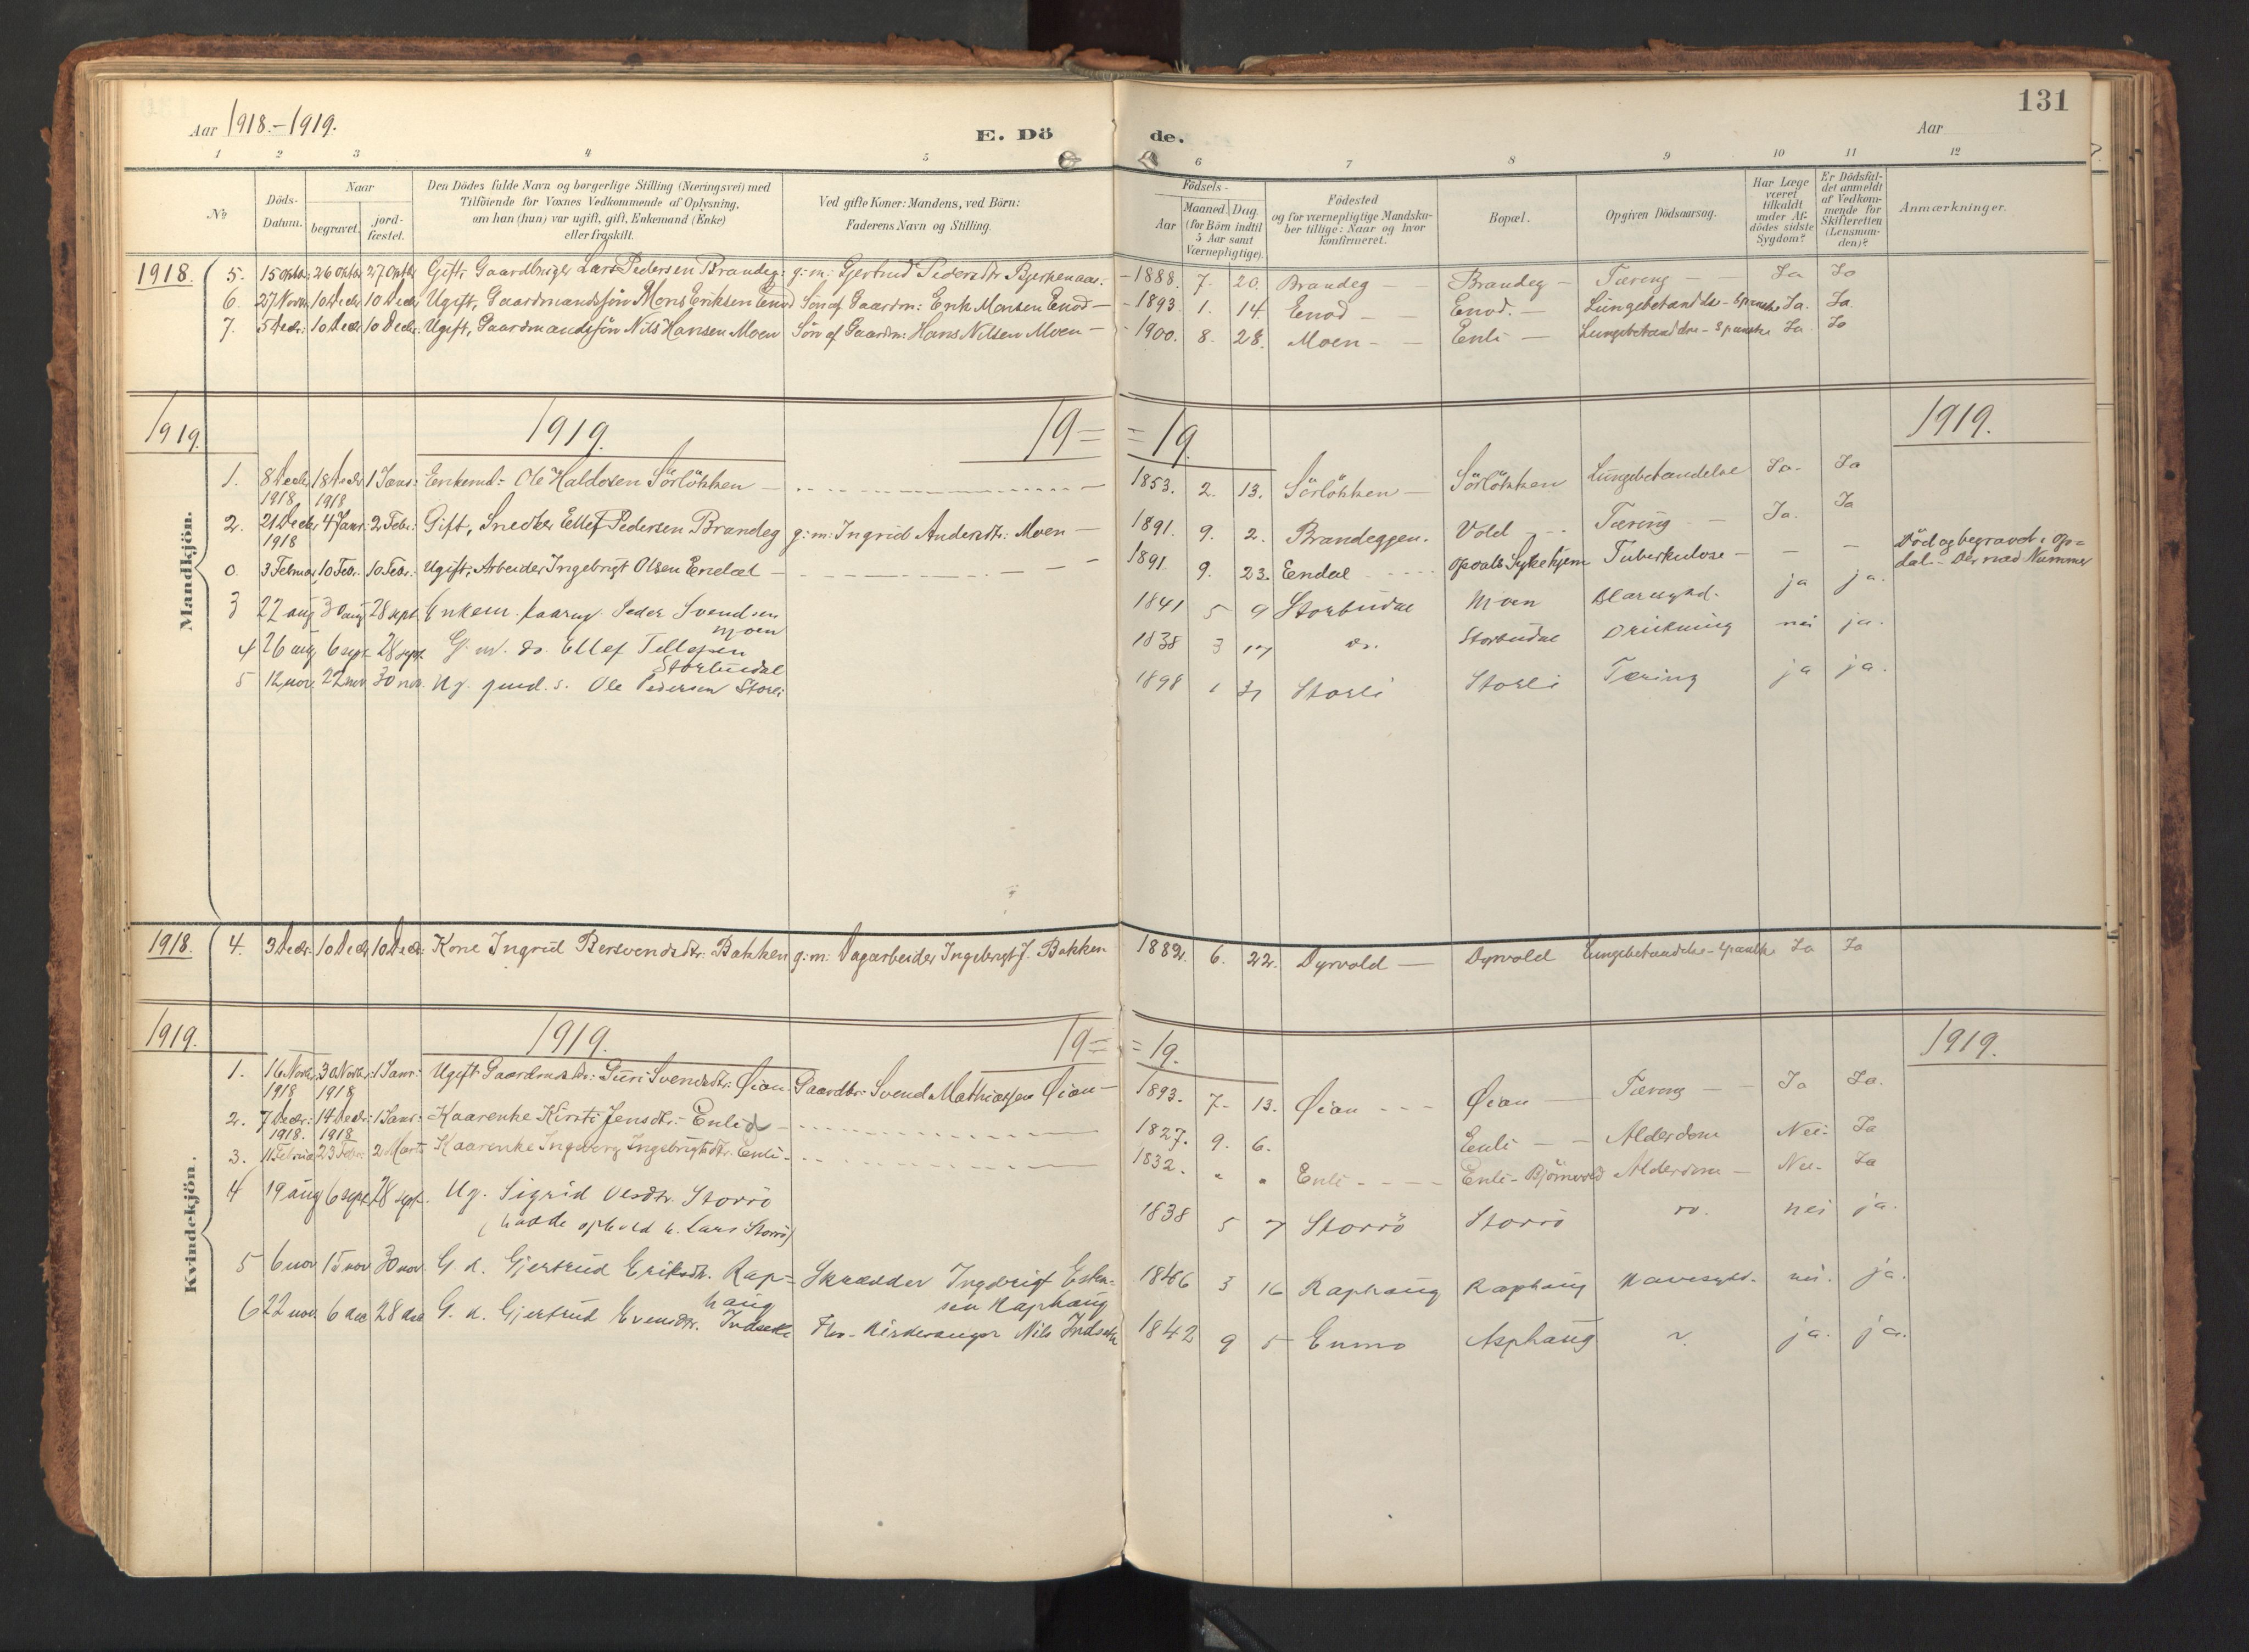 131
Aar 1918.-1919.
E. Dö de.
Aar
1 2 3 4 5 6 7 8 9 10 11 12
No
Döds-Datum.
Naar
begravet.
jord-fæstet.
Den Dödes fulde Navn og borgerlige Stilling (Næringsvei) med
Tilföiende for Voxnes Vedkommende af Oplysning,
om han (hun) var ugift, gift, Enkemand (Enke)
eller fraskilt.
Ved gifte Koner: Mandens, ved Börn:
Faderens Navn og Stilling.
Födsels-
Aar
Maaned. Dag.
(for Börn indtil
5 Aar samt
Værnepligtige).
Födested
og for værnepligtige Mandska-
ber tillige: Naar og hvor
konfirmeret.
Bopæl.
Opgiven Dödsaarsag.
Har Læge
været
tilkaldt
under Af-
dödes sidste
Sygdom?
Er Dödsfal-
det anmeldt
af Vedkom-
mende for
Skifteretten
(Lensman-
den)?
Anmærkninger.
Mandkjön.
1918. 5. 15 Oktbr: 26 Oktbr 27 Oktbr Gift, Gaardbruger Lars Pedersen Brandeg: g: m: Gjertrud Pedersdtr Bjerkenaas: 1888. 7. 20. Brandeg Brandeg Tæring Ja Ja
6. 27 Novbr: 10 Decbr 10 Decbr Ugift, Gaardmandssön Mons Eriksen Enod Sön af Gaardm: Erik Monsen Enod 1893. 1. 14. Enod Enod. Lungebetændelse - Spanske Ja. Ja.
7. 5 Decbr: 10 Decbr 10 Decbr: Ugift, Gaardmandssön Nils Hansen Moen Sön af Gaardm: Hans Nilsen Moen 1900. 8. 28. Moen Enli Lungebetændelse - Spanske Ja Ja
1919. 1919. 19= =19. 1919.
1. 8 Decbr 1918 18 Decbr 1918 1 Janr: Enkemd: Ole Haldosen Sörlökken 1853. 2. 13. Sörlökken Sörlökken Lungebetændelse Ja. Ja
2. 21 Decbr 1918 4 Janr: 2 Febr: Gift, Snedker Ellef Pedersen Brandeg g: m: Ingrid Andersdtr: Moen 1891. 9. 2. Brandeggen. Vold Tæring Ja. Ja
0. 3 Februar 10 Febr. 10 Febr. Ugift, Arbeider Ingebrigt Olsen Endal 1891. 9. 23. Endal Opdals Sykehjem Tuberkulose - - Död og begravet i Op=
dal. - Der med Nummer
3 22 aug 30 aug 28 sept Enkem. kaarm. Peder Svendsen
Moen 1841 5 9 Storbudal Moen ja ja.
4 26 aug 6 sept 28 sept G. m. do. Ellef Tellefsen
Storbudal 1838 3 17 do. Storbudal Drukning nei ja.
5 12 nov 22 nov 30 nov. Ug. gmd. s. Ole Pedersen Storli 1898 1 31 Storli Storli Tæring ja ja.
Kvindekjön.
1918. 4. 3 Decbr: 10 Decbr 10 Decbr: Kone Ingrid Bersvendsdtr: Bakken g: m: Dagarbeider Ingebrigt J. Bakken 1882. 6. 22. Dyrvold Dyrvold Lungebetændelse - Spanske Ja Ja
1919. 1919. 19= =19. 1919.
1. 16 Novbr 1918 30 Novbr 1918 1 Janr: Ugift Gaardmdsdtr: Guri Svendsdtr: Øian Gaardbr: Svend Mathiassen Øian 1893. 7. 13. Øian Øian Tæring Ja Ja.
2. 7 Decbr: 1918. 14 Decbr: 1918 1 Janr: Kaarenke Kirsti Jensdtr: Enlid 1827. 9. 6. Enli Alderdom Nei. Ja
3. 11 Februar 23 Febr. 2 Marts Kaarenke Ingeborg Ingebrigtsdtr. Enli 1832. " " Enli Enli - Björnvold Alderdom Nei. Ja
4 19 aug 6 sept 28 sept. Ug. Sigrid Olsdtr. Storrö
(hadde ophold h. Lars Storrö) 1838 5 7 Storrö Storrö do. nei ja.
5 6 nov 15 nov 30 nov G. k. Gjertrud Eriksdtr. Rap=
haug Skrædder Ingebrigt Esten=
sen Raphaug 1846 3 16 Raphaug Raphaug nei. ja.
6 22 nov. 6 dec 28 dec G. k. Gjertrud Evensdtr. Indset Fhv. Kirkesanger Nils Indset 1842 9 5 Enmo Asphaug ja. ja.